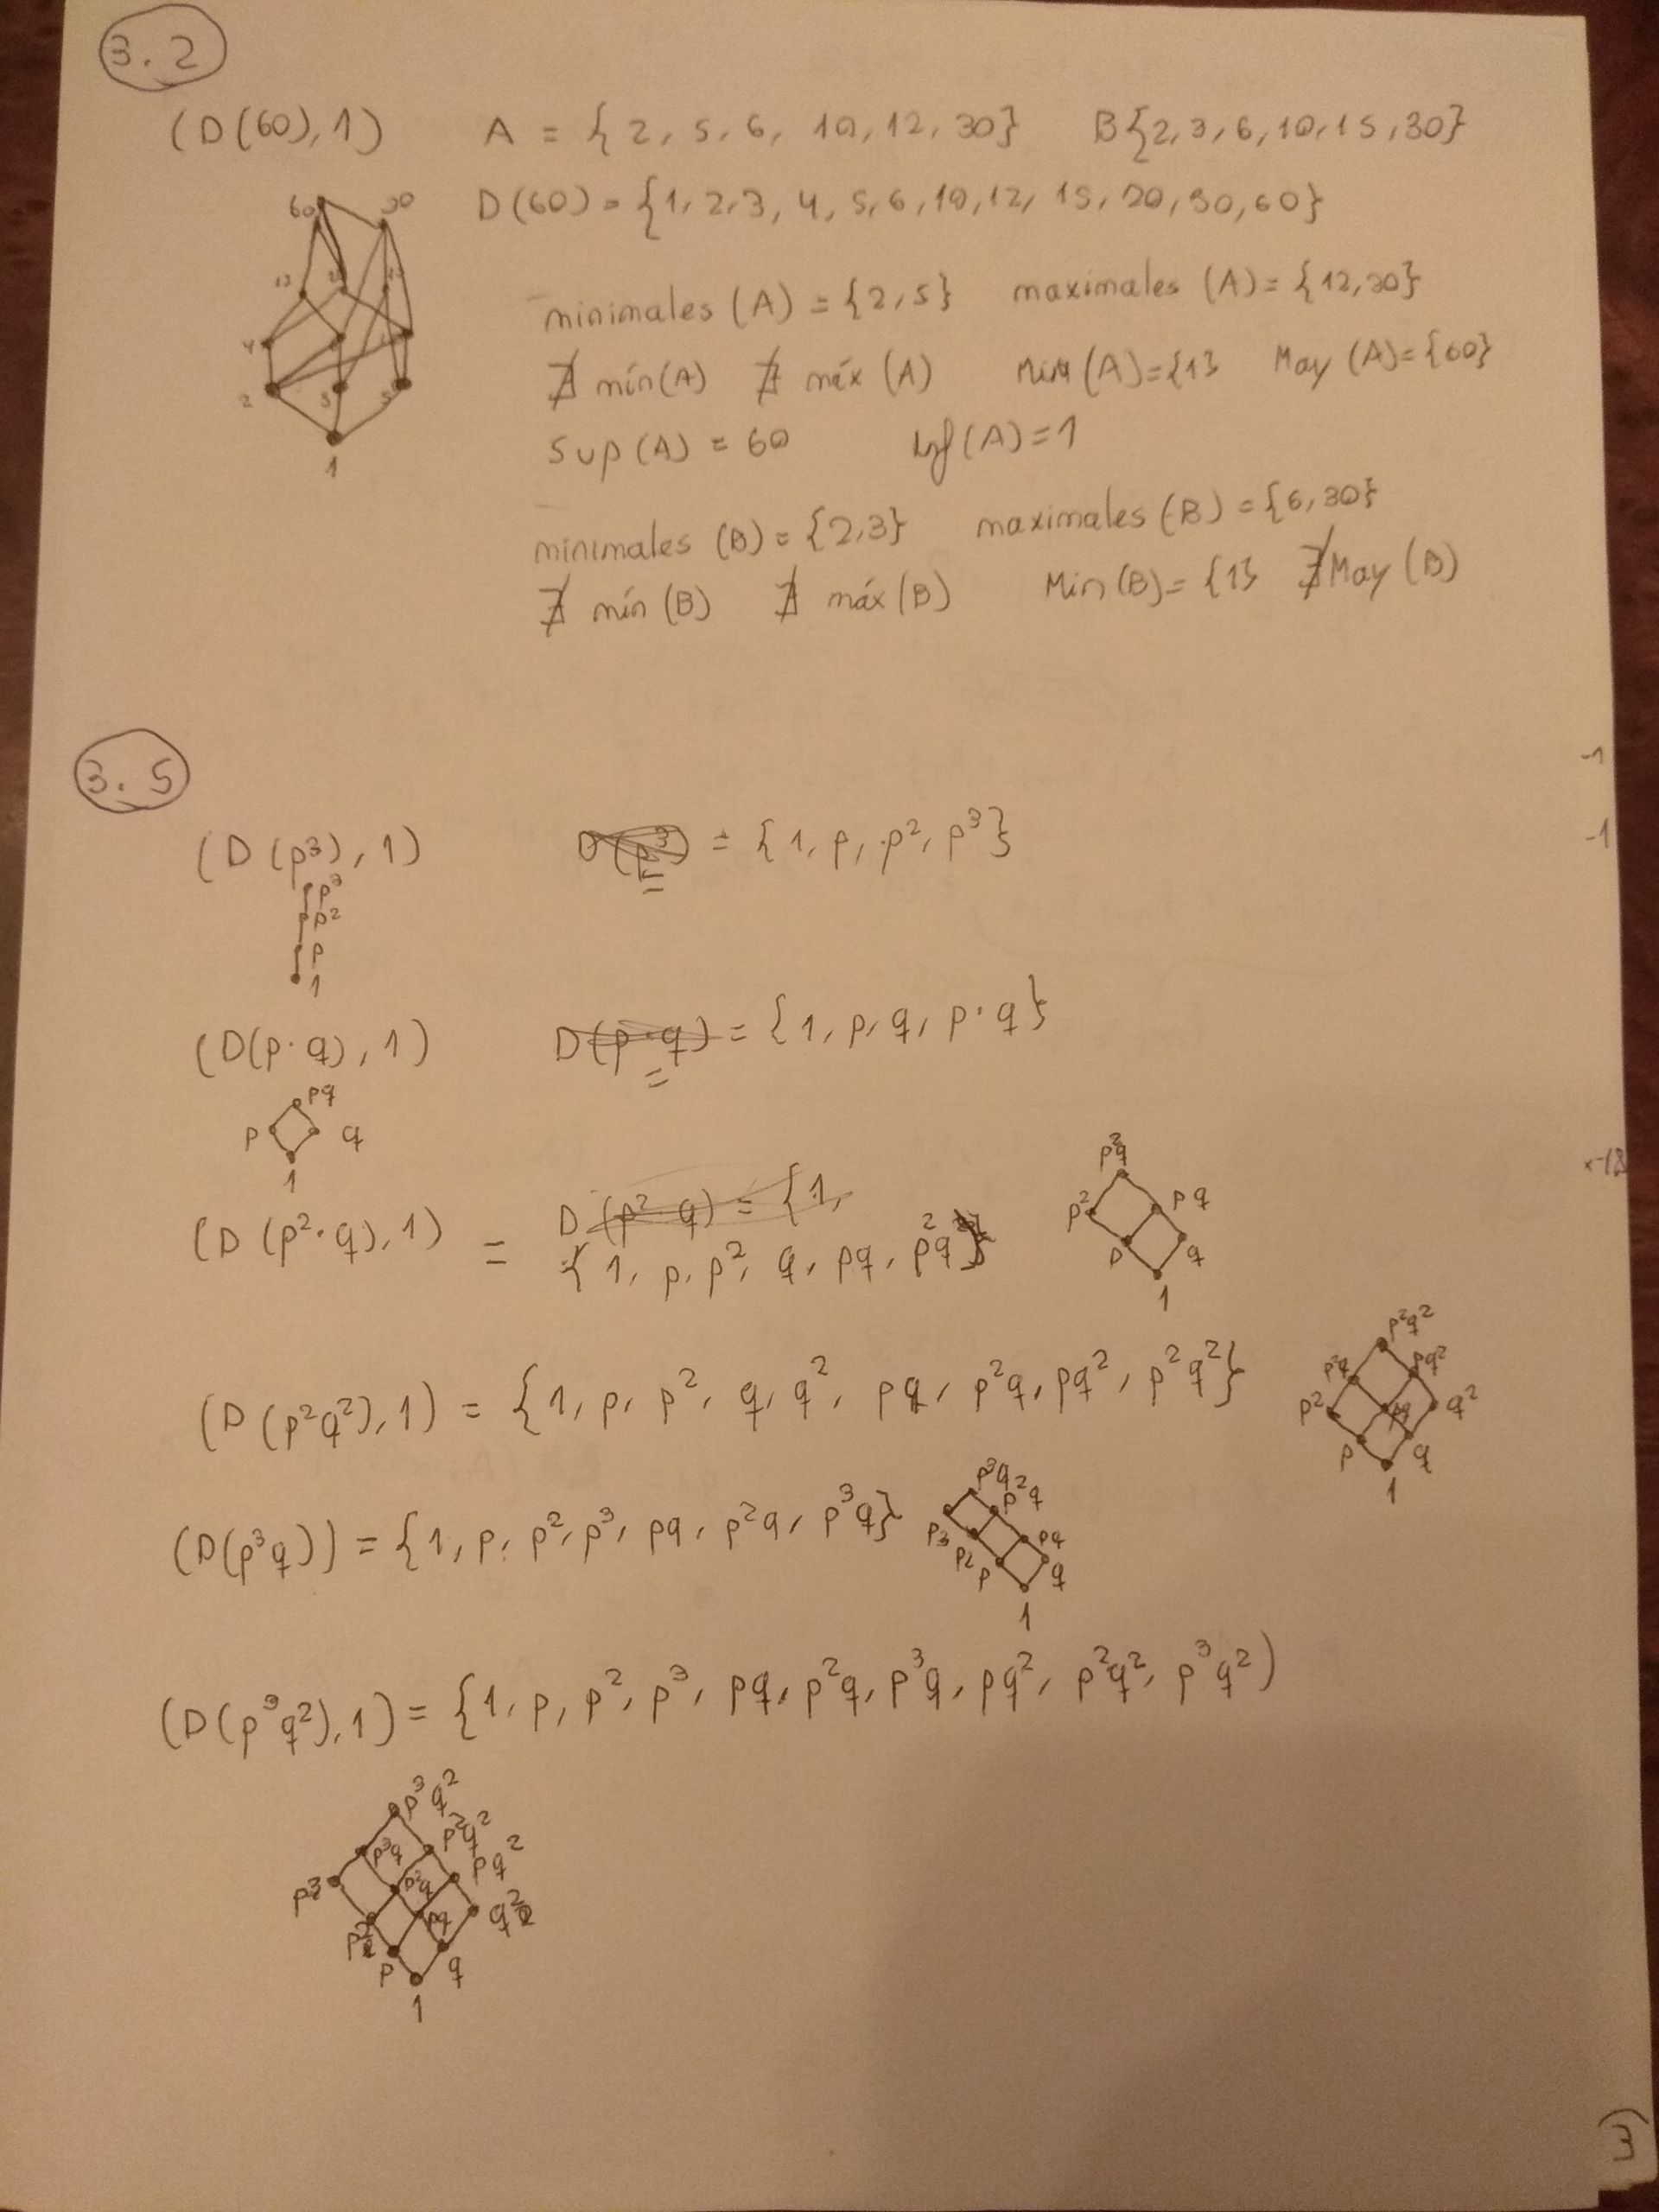 3.2
(D(60),1) A = {2,5,6,10,12,30} B{2,3,6,10,15,30}
60 30 D(60) = {1,2,3,4,5,6,10,12,15,20,30,60}
minimales (A) = {2,5} maximales (A) = {12,30}
4
∄ mín(A) ∄ máx (A) Min (A)={1} May (A)={60}
2 3 5
Sup (A) = 60 Inf (A) = 1
1
minimales (B) = {2,3} maximales (B) = {6,30}
∄ mín (B) ∄ máx (B) Min (B) = {1} ∄ May (B)
-1
3.5
(D(p³),1) D(p³) = {1, p, p², p³}
-1
p³
p²
p
1
(D(p·q),1) D(p·q) = {1, p, q, p·q}
pq
p q
1
D(p²·q) = {1,
(D(p²·q),1) = {1, p, p², q, pq, p²q}
p²q
p² pq
p q
1
(D(p²q²),1) = {1, p, p², q, q², pq, p²q, pq², p²q²}
p²q²
p²q pq²
p² pq q²
p q
1
(D(p³q)) = {1, p, p², p³, pq, p²q, p³q}
p³q
p²q
p3 pq
p2
p q
1
(D(p³q²),1) = {1, p, p², p³, pq, p²q, p³q, pq², p²q², p³q²)
p³q²
p³q p²q²
p3 p²q pq²
p² pq q²
p q
1
3